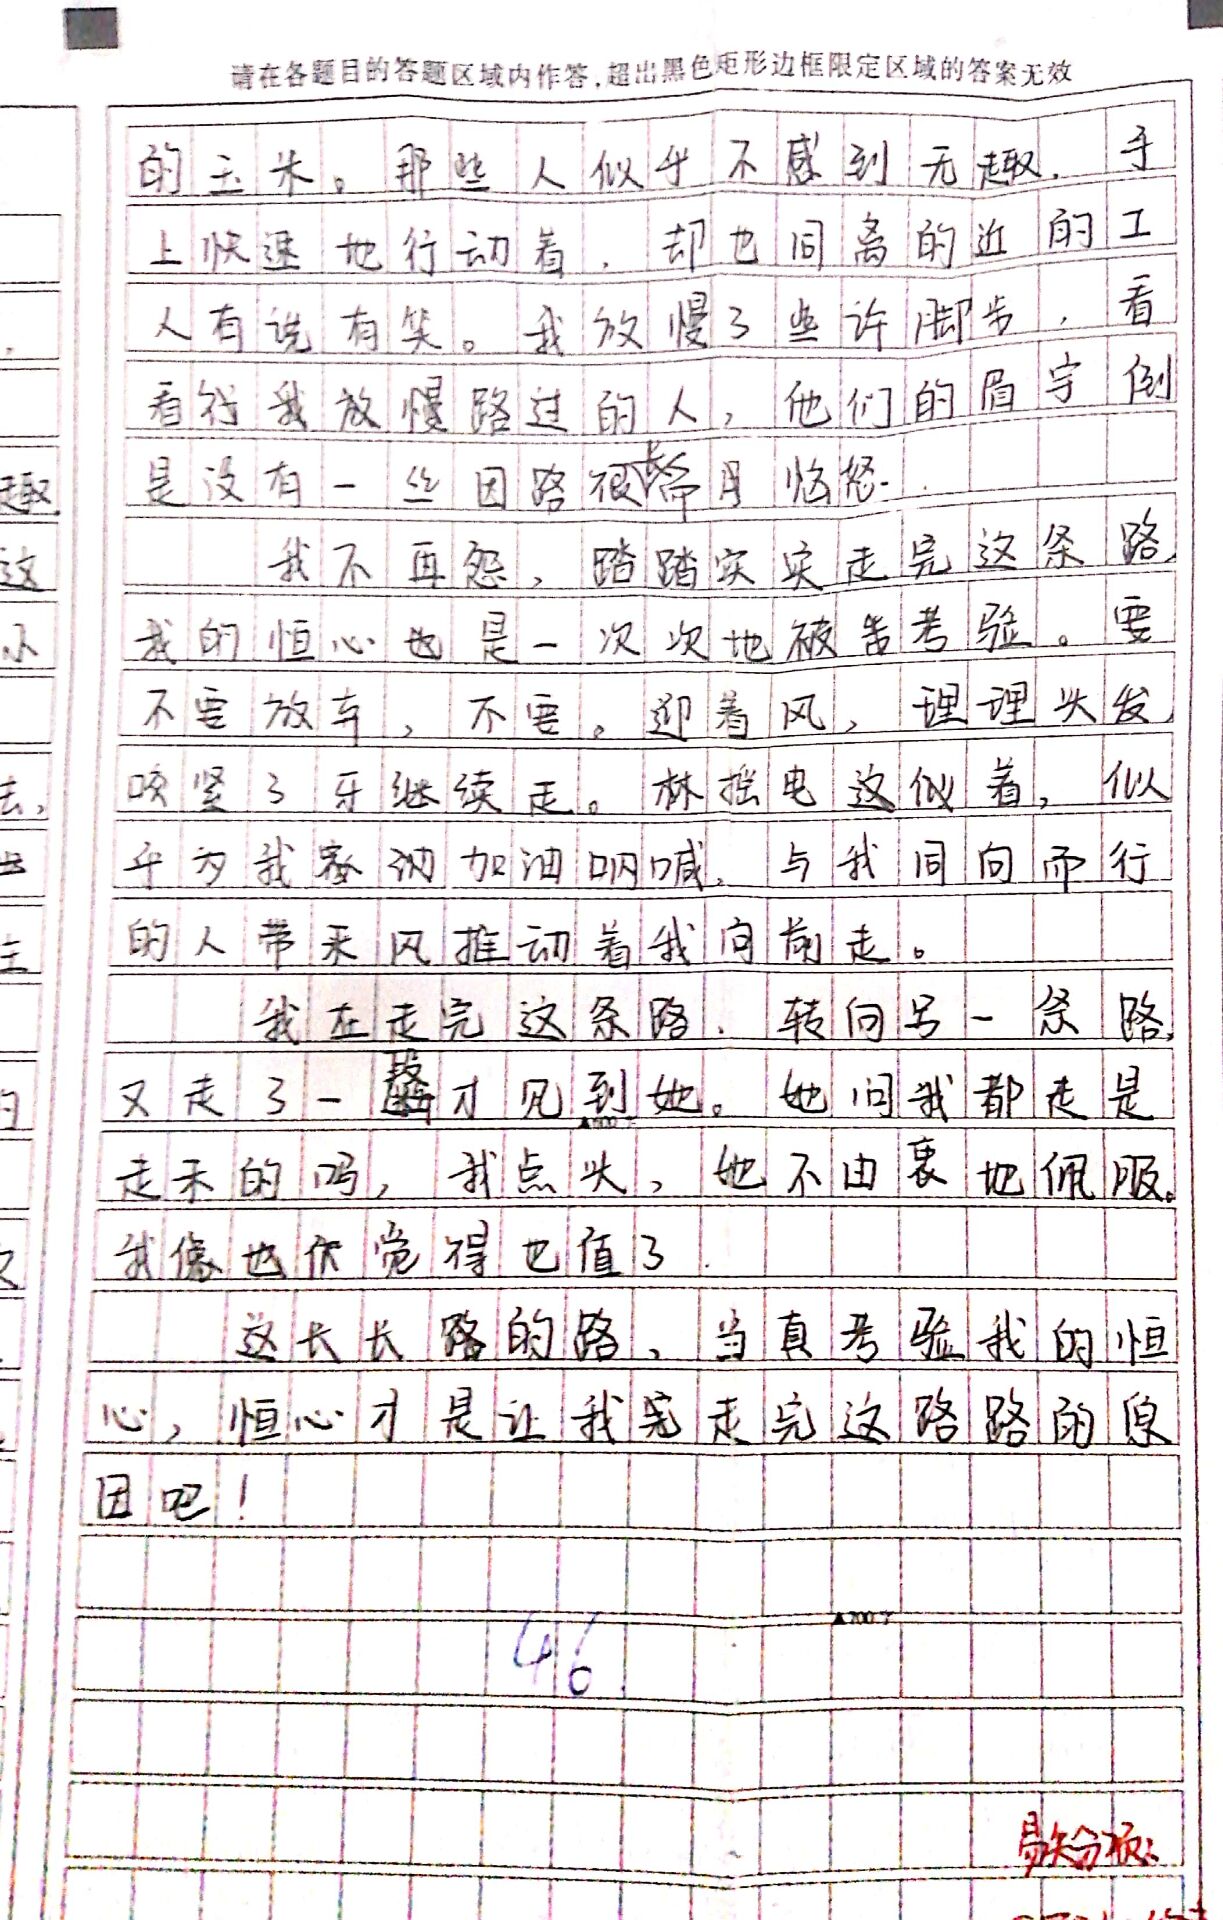 请在各题目的答题区域内作答,超出黑色矩形边框限定区域的答案无效
的玉米。那些人似乎不感到无趣,手
上快速地行动着,却也同离的近的工
人有说有笑。我放慢了些许脚步,看
看行我放慢路过的人,他们的眉宇倒
是没有一丝因路很长而恼怒.
我不再怨,踏踏实实走完这条路,
我的恒心也是一次次地被考验。要
不要放弃,不要。迎着风,理理头发,
咬紧了牙继续走。林摇电这似着,似
乎为我加油呐喊,与我同向而行
的人带来风推动着我向前走。
我在走完这条路,转向另一条路,
又走了一段才见到她。她问我都走是
走来的吗,我点头,她不由衷地佩服。
我像也伏觉得也值了.
这长长路的路,当真考验我的恒
心,恒心才是让我完走完这路路的原
因吧!
▲700字
46
易失分板:
趣
这
小
去,
主
的